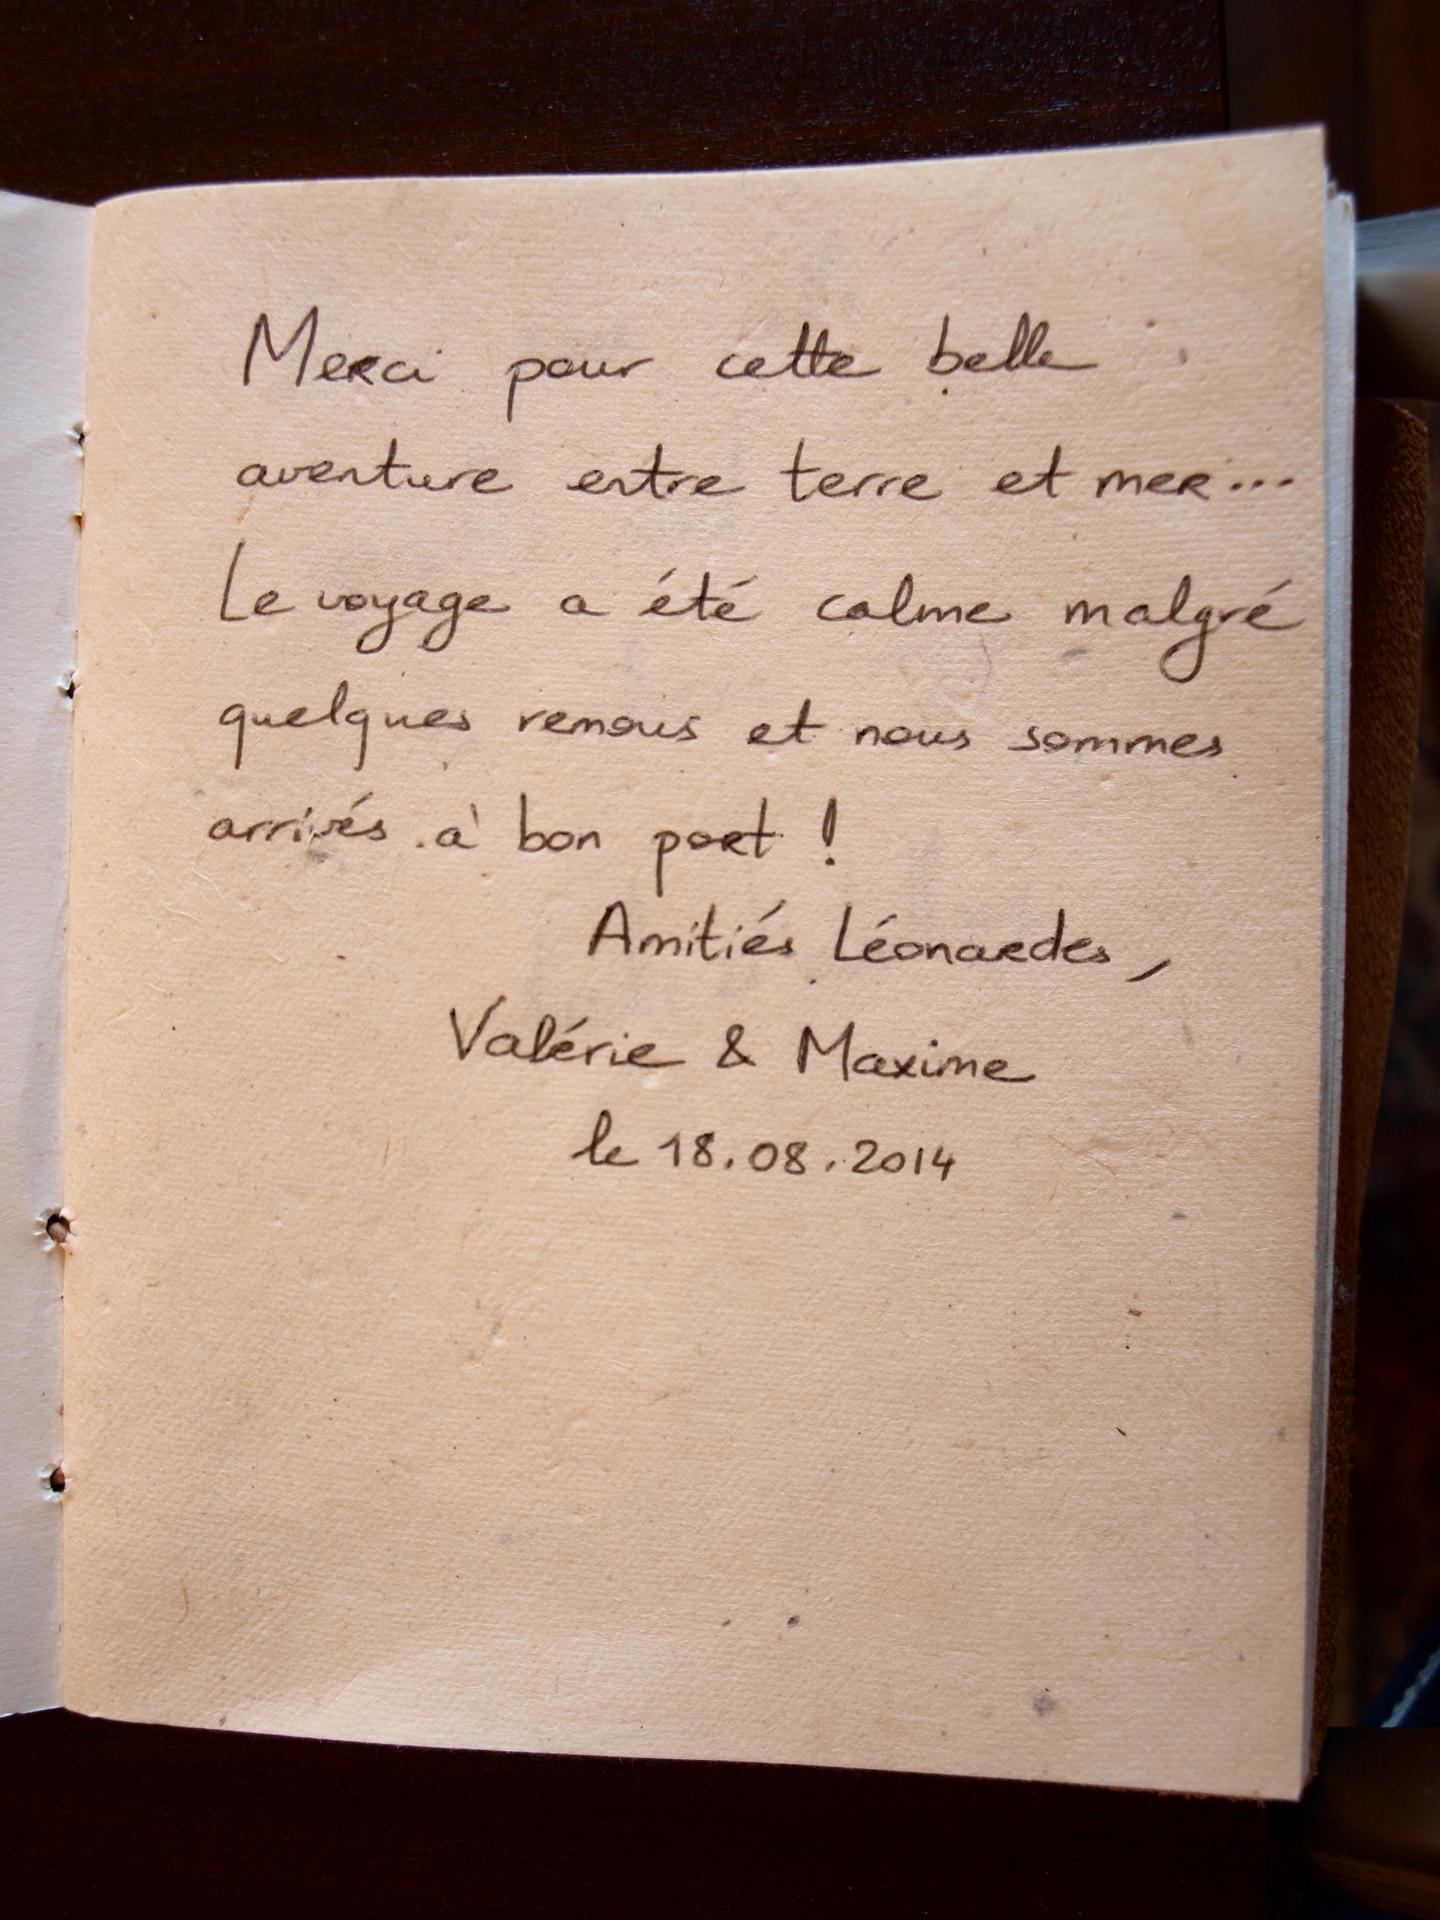 Merci pour cette belle
aventure entre terre et mer...
Le voyage a été calme malgré
quelques remous et nous sommes
arrivés à bon port !
Amitiés Léonardes,
Valérie & Maxime
le 18.08.2014